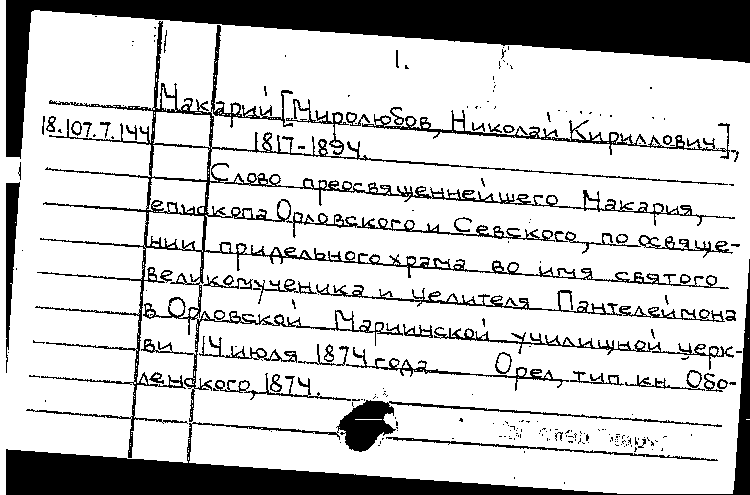 1.
Макарий [Миролюбов, Николай Кириллович],
18.107.7.144
1817-1894.
Слово преосвященнейшего Макария,
епископа Орловского и Севского, по освяще-
нии придельного храма во имя святого
великомученика и целителя Пантелеимона
в Орловской Мариинской училищной церк-
ви 14 июля 1874 года. Орел, тип. кн. Обо-
ленского, 1874.